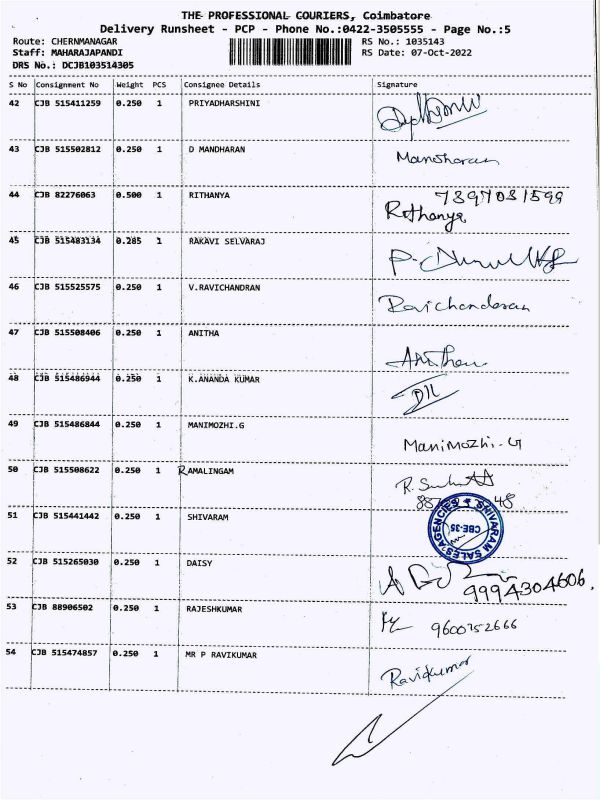 THE PROFESSIONAL COURIERS, Coimbatore
Delivery Runsheet - PCP - Phone No.:0422-3505555 - Page No.:5
Route: CHERNMANAGAR RS No.: 1035143
Staff: MAHARAJAPANDI RS Date: 07-Oct-2022
DRS No.: DCJB103514305
S No Consignment No Weight PCS Consignee Details Signature
42 CJB 515411259 0.250 1 PRIYADHARSHINI
43 CJB 515502812 0.250 1 D MANDHARAN Manoharan
44 CJB 82276063 0.500 1 RITHANYA 7397031599
Rithanya
45 CJB 515483134 0.285 1 RAKAVI SELVARAJ
46 CJB 515525575 0.250 1 V.RAVICHANDRAN Ravichandaran
47 CJB 515508406 0.250 1 ANITHA
48 CJB 515486944 0.250 1 K.ANANDA KUMAR
49 CJB 515486844 0.250 1 MANIMOZHI.G Manimozhi.G
50 CJB 515508622 0.250 1 RAMALINGAM
51 CJB 515441442 0.250 1 SHIVARAM SHIVARAM SALES AGENCIES CBE-35
52 CJB 515265030 0.250 1 DAISY 9994304606.
53 CJB 88906502 0.250 1 RAJESHKUMAR 9600752666
54 CJB 515474857 0.250 1 MR P RAVIKUMAR Ravikumar